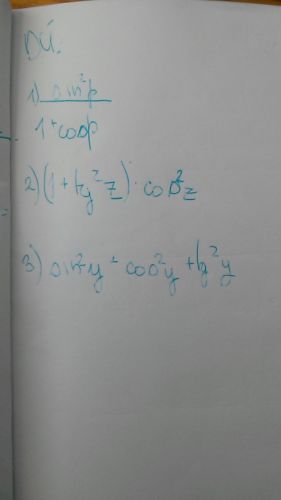 DÚ:
1) sin²p
1 + cosp
2) (1 + tg²z) · cos²z
3) sin²y + cos²y + tg²y